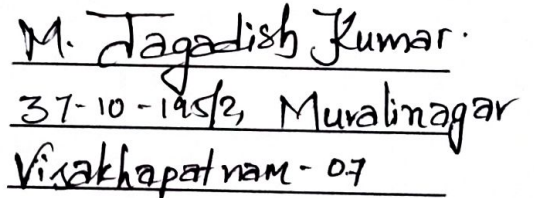 M. Jagadish Kumar.
37-10-195/2, Muralinagar
Visakhapatnam - 07